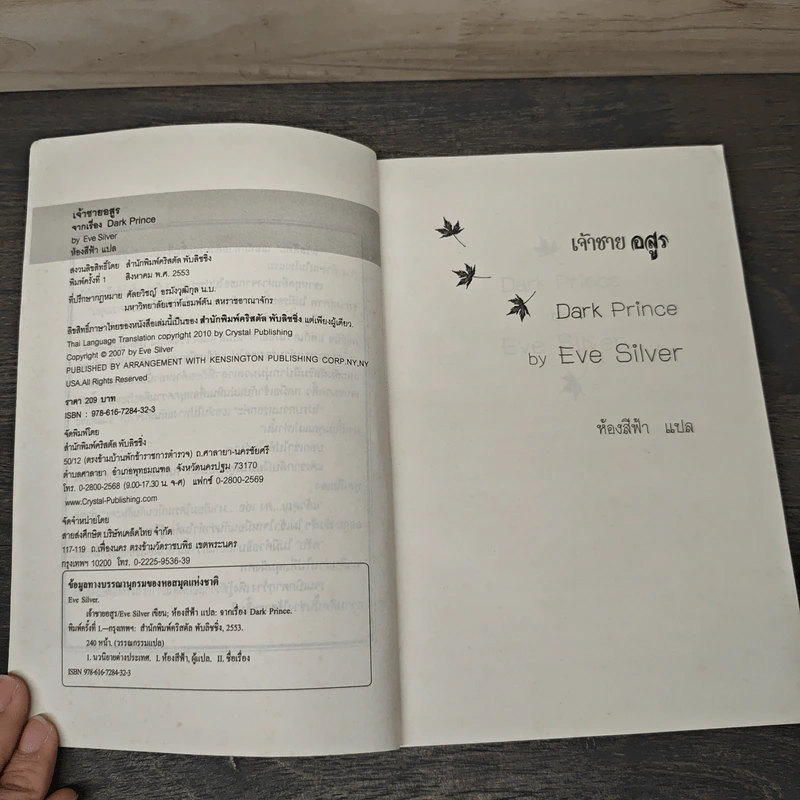 เจ้าชายอสูร
จากเรื่อง Dark Prince
by Eve Silver
ห้องสีฟ้า แปล
สงวนลิขสิทธิ์โดย สำนักพิมพ์คริสตัล พับลิชชิ่ง
พิมพ์ครั้งที่ 1 สิงหาคม พ.ศ. 2553
ที่ปรึกษากฎหมาย ศัลยวิชญ์ อรมังวุฒิกุล น.บ.
มหาวิทยาลัยเซาท์แธมพ์ตัน สหราชอาณาจักร
ลิขสิทธิ์ภาษาไทยของหนังสือเล่มนี้เป็นของ สำนักพิมพ์คริสตัล พับลิชชิ่ง แต่เพียงผู้เดียว.
Thai Language Translation copyright 2010 by Crystal Publishing
Copyright © 2007 by Eve Silver
PUBLISHED BY ARRANGEMENT WITH KENSINGTON PUBLISHING CORP.NY,NY
USA.All Rights Reserved
ราคา 209 บาท
ISBN : 978-616-7284-32-3
จัดพิมพ์โดย
สำนักพิมพ์คริสตัล พับลิชชิ่ง
50/12 (ตรงข้ามบ้านพักข้าราชการตำรวจ) ถ.ศาลายา-นครชัยศรี
ตำบลศาลายา อำเภอพุทธมณฑล จังหวัดนครปฐม 73170
โทร. 0-2800-2568 (9.00-17.30 น. จ-ศ) แฟกซ์ 0-2800-2569
www.Crystal-Publishing.com
จัดจำหน่ายโดย
สายส่งศึกษิต บริษัทเคล็ดไทย จำกัด
117-119 ถ.เฟื่องนคร ตรงข้ามวัดราชบพิธ เขตพระนคร
กรุงเทพฯ 10200 โทร. 0-2225-9536-39
ข้อมูลทางบรรณานุกรมของหอสมุดแห่งชาติ
Eve Silver.
เจ้าชายอสูร/Eve Silver เขียน; ห้องสีฟ้า แปล: จากเรื่อง Dark Prince.
พิมพ์ครั้งที่ 1.—กรุงเทพฯ: สำนักพิมพ์คริสตัล พับลิชชิ่ง, 2553.
240 หน้า. (วรรณกรรมแปล)
1. นวนิยายต่างประเทศ. I. ห้องสีฟ้า, ผู้แปล. II. ชื่อเรื่อง
ISBN 978-616-7284-32-3
เจ้าชาย อสูร
Dark Prince
by Eve Silver
ห้องสีฟ้า แปล